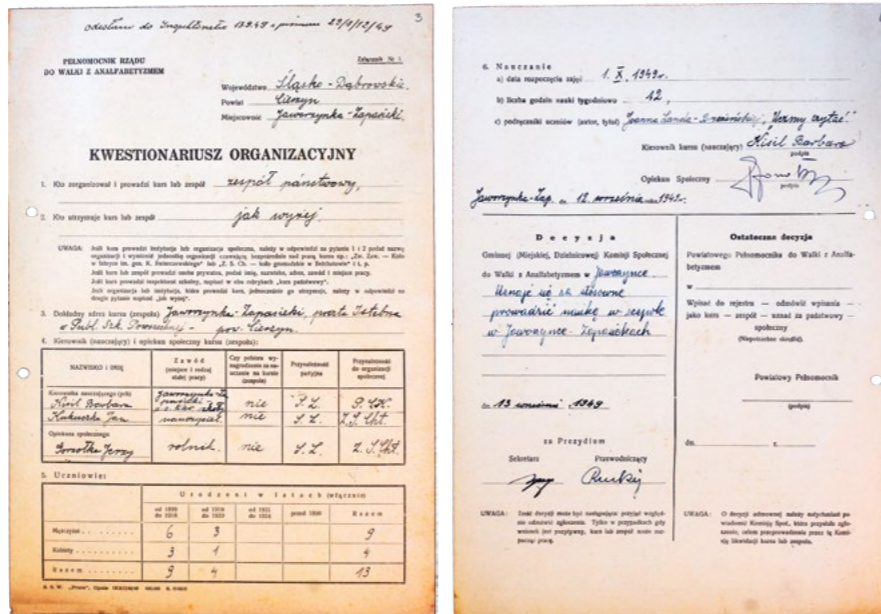 odesłano do Inspektoratu 13.9.49 z pismem 29/4/12/49
3
PEŁNOMOCNIK RZĄDU
DO WALKI Z ANALFABETYZMEM
Załącznik Nr 1
Województwo Śląsko-Dąbrowskie
Powiat Cieszyn
Miejscowość Jaworzynka-Zapasieki
KWESTIONARIUSZ ORGANIZACYJNY
1. Kto zorganizował i prowadzi kurs lub zespół zespół państwowy,
2. Kto utrzymuje kurs lub zespół jak wyżej.
UWAGA: Jeśli kurs prowadzi instytucja lub organizacja społeczna, należy w odpowiedzi na pytania 1 i 2 podać nazwę
organizacji i wymienić jednostkę organizacji czuwającą bezpośrednio nad pracą kursu np.: „Zw. Zaw. — Koło
w fabryce im. gen. K. Świerczewskiego" lub „Z. S. Ch. — koło gromadzkie w Bełchatowie" i t. p.
Jeśli kurs lub zespół prowadzi osoba prywatna, podać imię, nazwisko, adres, zawód i miejsce pracy.
Jeśli kurs prowadzi inspektorat szkolny, napisać w obu rubrykach „kurs państwowy".
Jeśli organizacja lub instytucja, która prowadzi kurs, jednocześnie go utrzymuje, należy w odpowiedzi na
drugie pytanie napisać „jak wyżej".
3. Dokładny adres kursu (zespołu) Jaworzynka-Zapasieki, poczta Istebna
w Publ. Szk. Powszechnej - pow. Cieszyn.
4. Kierownik (nauczający) i opiekun społeczny kursu (zespołu):
NAZWISKO i IMIĘ
Zawód
(miejsce i rodzaj
stałej pracy)
Czy pobiera wy-
nagrodzenie za na-
uczanie na kursie
(zespole)
Przynależność
partyjna
Przynależność
do organizacji
społecznej
Kierownika nauczającego (ych)
Kisil Barbara nie S. L.
Kukuczka Jan nauczyciel nie S. L. Z. S. Cht.
Opiekuna społecznego
Jerzy rolnik nie S. L. Z. S. Cht.
5. Uczniowie:
Urodzeni w latach (włącznie)
od 1899
do 1918
od 1919
do 1930
od 1931
do 1934
przed 1899
Razem
Mężczyźni 6 3 9
Kobiety 3 1 4
Razem 9 4 13
6. Nauczanie
a) data rozpoczęcia zajęć 1. X. 1949r.
b) liczba godzin nauki tygodniowo 12,
c) podręczniki uczniów (autor, tytuł) Joanna Landa-Brzezińska, "Uczmy czytać"
Kierownik kursu (nauczający) Kisil Barbara
podpis
Opiekun Społeczny
podpis
Jaworzynka-Zap. dn. 12 września roku 1949r.
Decyzja
Gminnej (Miejskiej, Dzielnicowej) Komisji Społecznej
do Walki z Analfabetyzmem w Jaworzynce
Uznaje się za stosowne
prowadzić naukę w zespole
w Jaworzynce-Zapasiekach
dn. 13 wrzesień 1949
za Prezydium
Sekretarz Przewodniczący
UWAGA: Treść decyzji może być następująca: przyjąć względ-
nie odmówić zgłoszenia. Tylko w przypadkach gdy
wniosek jest pozytywny, kurs lub zespół może roz-
począć pracę.
Ostateczna decyzja
Powiatowego Pełnomocnika do Walki z Analfa-
betyzmem
w
Wpisać do rejestru — odmówić wpisania —
jako kurs — zespół — uznać za państwowy —
społeczny
(Niepotrzebne skreślić).
Powiatowy Pełnomocnik
(podpis)
dn. r.
UWAGA: O decyzji odmownej należy natychmiast po-
wiadomić Komisję Społ., która przysłała zgło-
szenie, celem przeprowadzenia przez tę Komi-
sję likwidacji kursu lub zespołu.